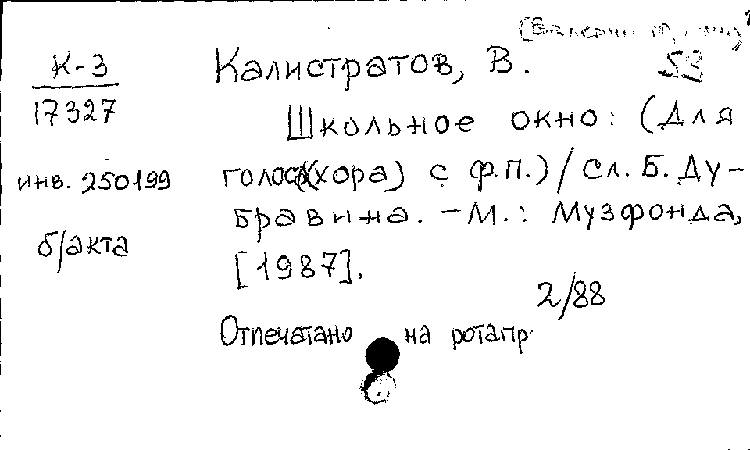 [Валерий
К-3 Калистратов, В. 53
17327 Школьное окно: (Для
инв. 250199 голоса(хора) с ф.п.) / Сл. Б. Ду-
б/акта бравина. - М.: Музфонда,
[1987].
2/88
Отпечатано на ротапр.